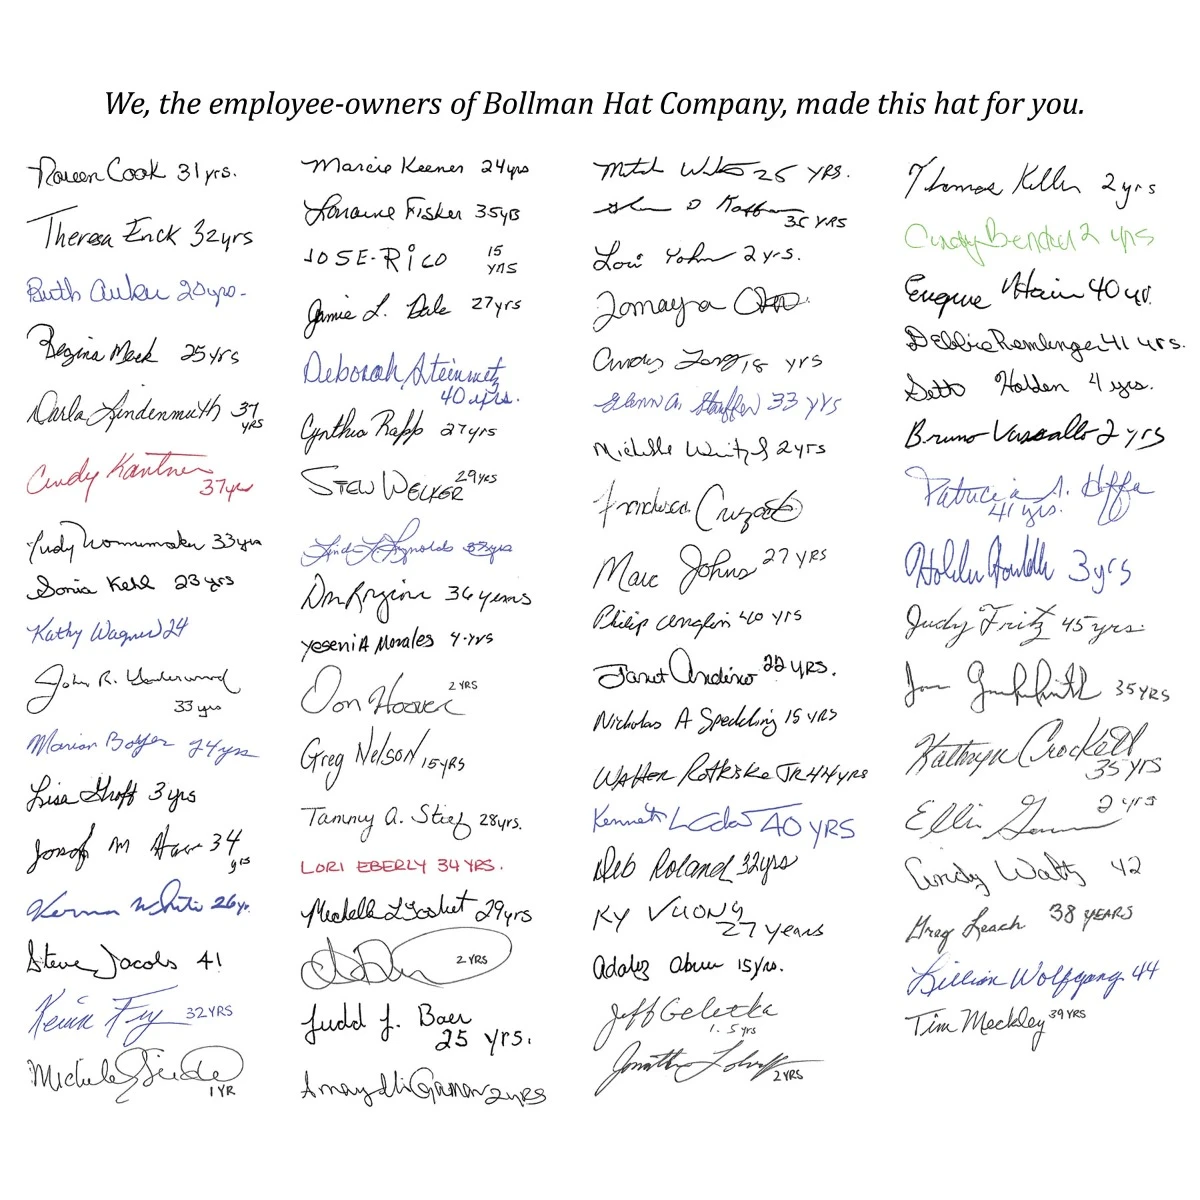 We, the employee-owners of Bollman Hat Company, made this hat for you.
Cook 31 yrs.
Theresa Enck 32 yrs
Ruth Auker 20 yrs.
Regina Meck 25 yrs
Darla Lindenmuth 37
YRS
Cindy Kantner
37 yrs
Judy 33 yrs
Sonia Kehl 23 yrs
Kathy Wagner 24
John R. Underwood
33 yrs
Marian Boyer 24 yrs
Lisa Groff 3 yrs
Josef M 34
yrs
26 yr.
Steve Jacobs 41
Kevin Fry 32 YRS
Michele
1 YR
Marcie Keener 24 yrs
Lorraine Fisher 35 yrs
JOSE-RICO 15
YRS
Jamie L. Dale 27 yrs
Deborah Steinmetz
40 yrs.
Cynthia Rapp 27 yrs
STEW WELKER 29 YRS
Linda L. Reynolds
36 years
YeseniA Morales 4-yrs
Don Hoover 2 YRS
Greg Nelson 15 YRS
Tammy A. Stief 28 yrs.
LORI EBERLY 34 YRS.
Mechelle 29 yrs
2 YRS
Judd J. Baer
25 yrs.
2 YRS
Mitch 25 YRS.
D
YRS
Lori Yohn 2 yrs.
Tomaya
Cindy Long, 18 yrs
Glenn A. Stauffer 33 yrs
Michelle 2 yrs
Francisca
Marc Johns 27 YRS
Philip Anglin 40 yrs
Janet Andino 22 YRS.
Nicholas A Spedding 15 YRS
Walter Rotkiske JR 44 YRS
Kenneth 40 YRS
Deb Roland 32 yrs
KY VUONG
27 years
15 yrs.
Jeff Geletka
1.5 yrs
Jonathan
2 YRS
Thomas 2 yrs
Cindy Bender 2 yrs
Eugene Hain 40 yr.
Debbie Remlinger 41 yrs.
Seth Holden 4 yrs.
Bruno Vassallo 2 yrs
Patricia A.
41 yrs.
3 yrs
Judy Fritz 45 yrs.
35 YRS
Kathryn Crockett
35 YRS
2 yrs
Cindy Waltz 42
Greg Leach 38 YEARS
Lillian Wolfgang 44
Tim Meckley 39 YRS